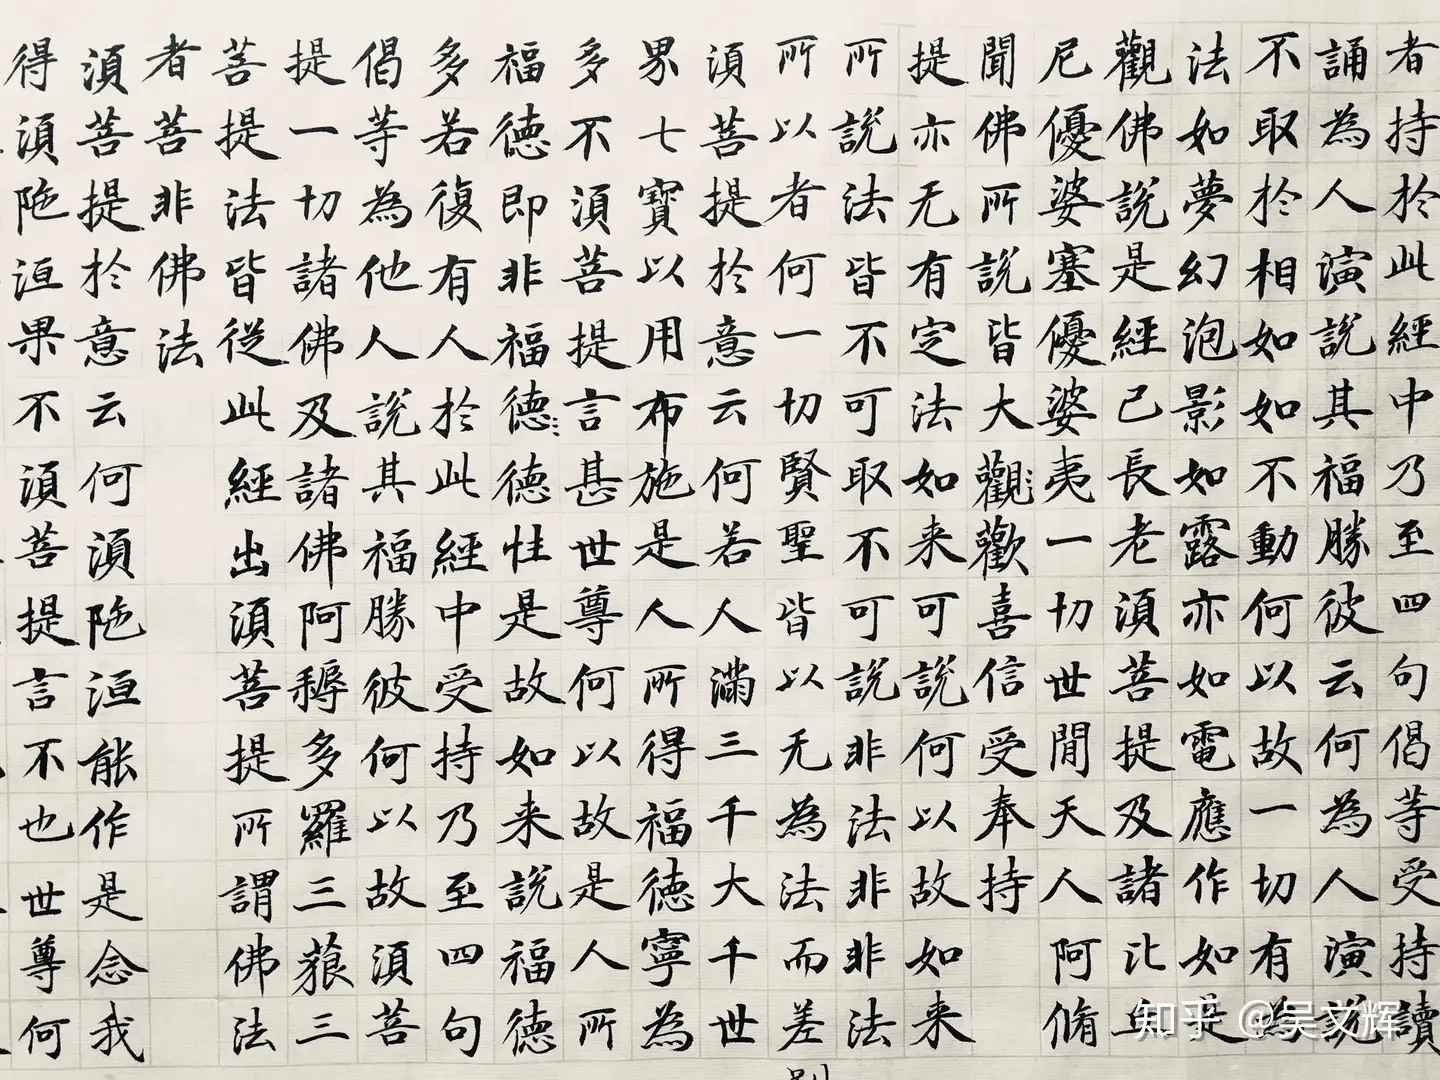 者持於此經中乃至四句偈等受持讀
誦為人演說其福勝彼云何為人演說
不取於相如如不動何以故一切有為
法如夢幻泡影如露亦如電應作如是
觀佛說是經已長老須菩提及諸比丘
尼優婆塞優婆夷一切世間天人阿脩
聞佛所說皆大觀歡喜信受奉持
提亦无有定法如来可說何以故如来
所說法皆不可取不可說非法非非法
所以者何一切賢聖皆以无為法而差
須菩提於意云何若人滿三千大千世
界七寶以用布施是人所得福德寧為
多不須菩提言甚世尊何以故是人所
福德即非福德德性是故如来說福德
多若復有人於此經中受持乃至四句
偈等為他人說其福勝彼何以故須菩
提一切諸佛及諸佛阿耨多羅三藐三
菩提法皆從此經出須菩提所謂佛法
者菩非佛法
須菩提於意云何須陁洹能作是念我
得須陁洹果不須菩提言不也世尊何
知乎 @吴文辉